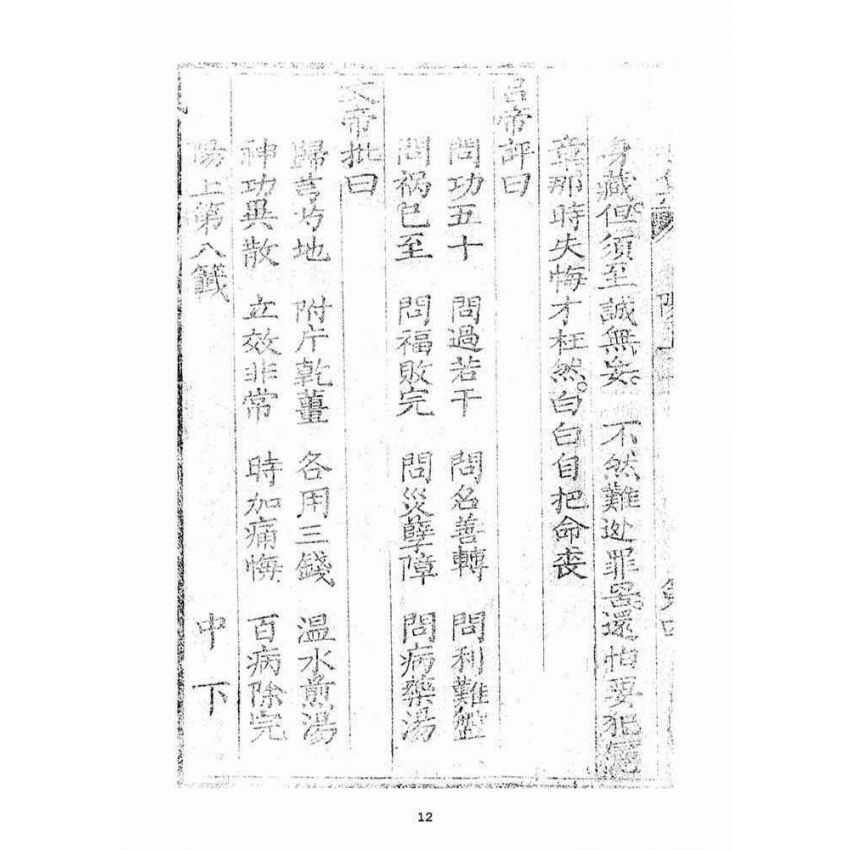 身藏但須至誠無妄。不然難迯罪
還怕要犯
章那時失悔才枉然。白白自把命丧
呂帝評曰
問功五十 問過若干 問名善轉 問利難盤
問祸已至 問福敗完 問災孽障 問病藥湯
文帝批曰
歸芎芍地 附片乾薑 各用三錢 温水煎湯
神功異散 立效非常 時加痛悔 百病除完
陽上第八籤 中下
12